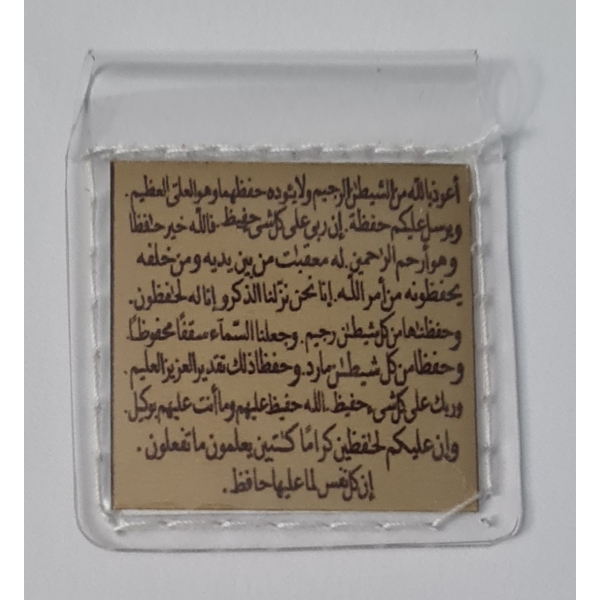 أعوذ بالله من الشيطٰن الرجيم ولا يئوده حفظهما وهو العلى العظيم.
ويرسل عليكم حفظة. إن ربى على كل شىء حفيظ. فالله خير حٰفظا
وهو أرحم الرٰحمين. له معقبٰت من بين يديه ومن خلفه
يحفظونه من أمر الله. إنا نحن نزلنا الذكر وإنا له لحٰفظون.
وحفظنٰها من كل شيطٰن رجيم. وجعلنا السمآء سقفًا محفوظًا.
وحفظا من كل شيطٰن مارد. وحفظا ذلك تقدير العزيز العليم.
وربك على كل شىء حفيظ. الله حفيظ عليهم وما أنت عليهم بوكيل.
وإن عليكم لحٰفظين كرامًا كٰتبين يعلمون ما تفعلون.
إن كل نفس لما عليها حافظ.